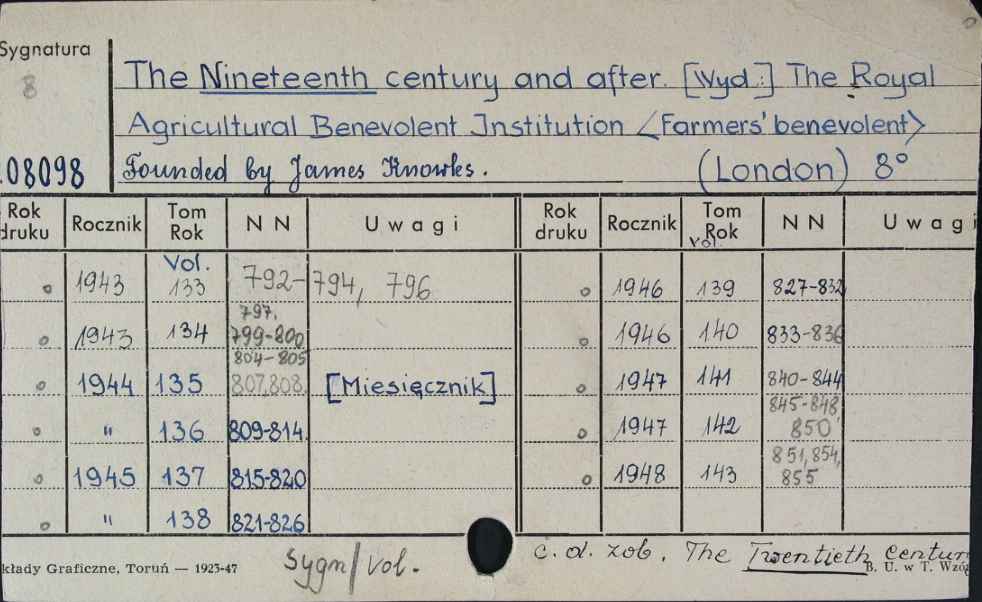 Sygnatura
8
The Nineteenth century and after. [Wyd.:] The Royal
Agricultural Benevolent Institution <Farmers' benevolent>
08098 Founded by James Knowles. (London) 8°
Rok druku Rocznik Tom Rok N N Uwagi Rok druku Rocznik Tom Vol. Rok N N Uwagi
o 1943 Vol. 133 792-794, 796 o 1946 139 827-832
o 1943 134 797, 799-800 o 1946 140 833-836
o 1944 135 804-805 807,808 [Miesięcznik] o 1947 141 840-844
o " 136 809-814 o 1947 142 845-848, 850
o 1945 137 815-820 o 1948 143 851,854, 855
o " 138 821-826
kłady Graficzne, Toruń — 1923-47 Sygn/vol. c. d. zob. The Twentieth Centur
B. U. w T. Wzó